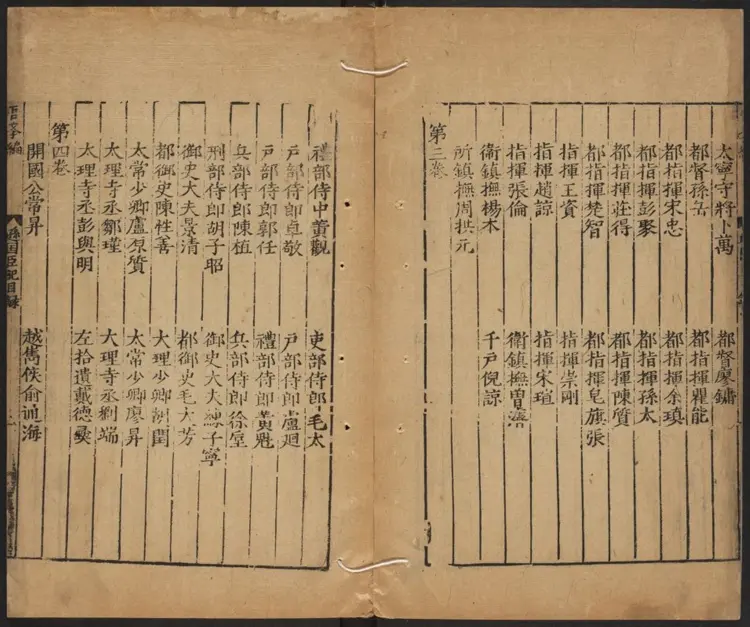 大寧守將卜萬 都督廖鏞
都督孫岳 都指揮瞿能
都指揮宋忠 都指揮余瑱
都指揮彭聚 都指揮孫太
都指揮莊得 都指揮陳質
都指揮楚智 都指揮皂旗張
指揮王資 指揮崇剛
指揮趙諒 指揮宋瑄
指揮張倫 衛鎮撫曹
衛鎮撫楊本 千戶倪諒
所鎮撫周拱元
第三卷
禮部侍中黃觀 吏部侍郎毛太
戶部侍郎卓敬 戶部侍郎盧迥
戶部侍郎郭任 禮部侍郎黃魁
兵部侍郎陳植 兵部侍郎徐垕
刑部侍郎胡子昭 御史大夫練子寧
御史大夫景清 都御史毛大芳
都御史陳性善 大理少卿胡閏
太常少卿盧原質 太常少卿廖昇
大理寺丞鄒瑾 大理寺丞劉端
大理寺丞彭與明 左拾遺戴德彝
第四卷
開國公常昇 越雋侯俞通海
遜國臣記目錄